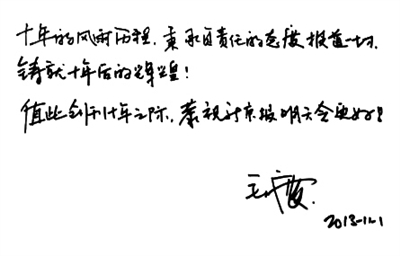 十年的风雨历程，秉承负责任的态度报道一切，
铸就十年后的辉煌！
值此创刊十年之际，恭祝新京报明天会更好！
2013-11.1